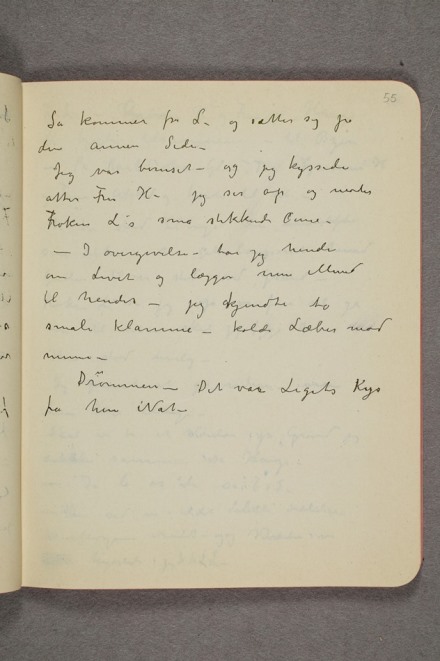 55
Så kommer frk L. og sætter sig på
den annen Side –
Jeg var beruset – og jeg kyssede
atter Fru H – jeg ser op og møder
Frøken L's små stikkende Øine –
– I overgivelse – tar jeg hende
om Livet og lægger min Mund
til hendes – jeg kjendte to
smale klamme – kolde Læber mod
mine –
Drømmen – Det var Ligets Kys
på hin iNat –